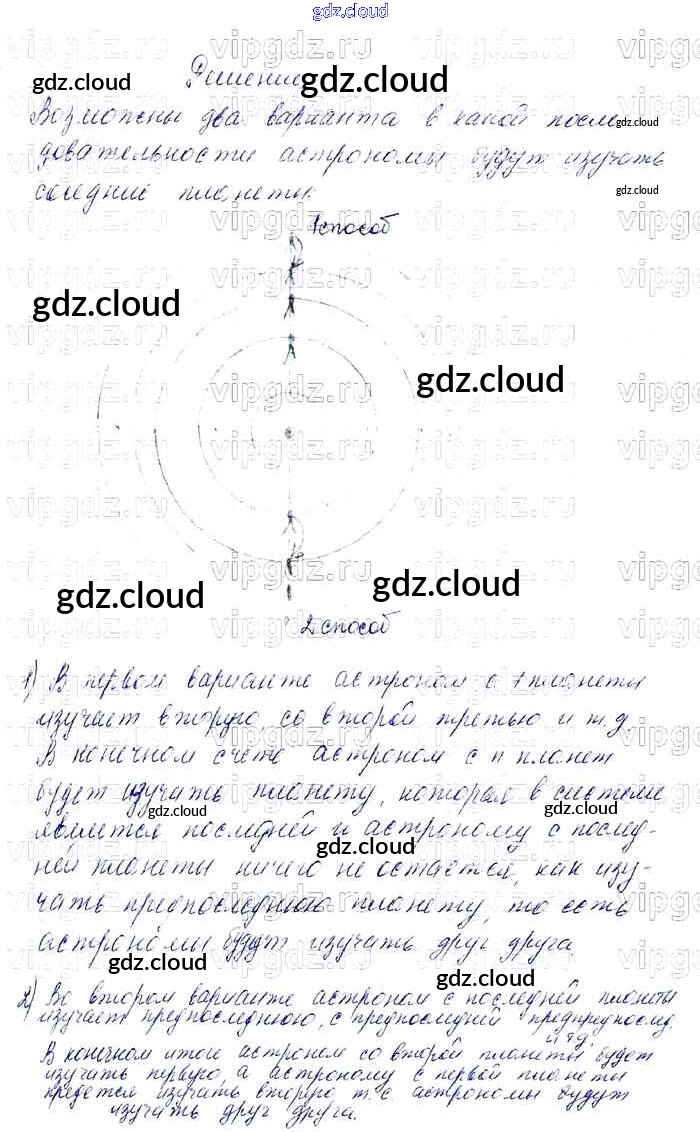 gdz.cloud
Решение
Возможны два варианта в какой после
довательности астрономы будут изучать
соседние планеты.
1 способ
2 способ
1) В первом варианте астроном с 1 планеты
изучает вторую со второй третью и т.д
В конечном счете астроном с n планет
будет изучать планету, которая в системе
является последней и астроному с послед-
ней планеты ничего не остается, как изу-
чать предпоследнюю планету, то есть
астрономы будут изучать друг друга.
2) Во втором варианте астроном с последней планеты
изучает предпоследнюю, с предпоследней предпредпослед
и т д.
В конечном итоге астроном со второй планеты будет
изучать первую, а астроному с первой планеты
придется изучать вторую т.е. астрономы будут
изучать друг друга.
gdz.cloud
vipgdz.ru